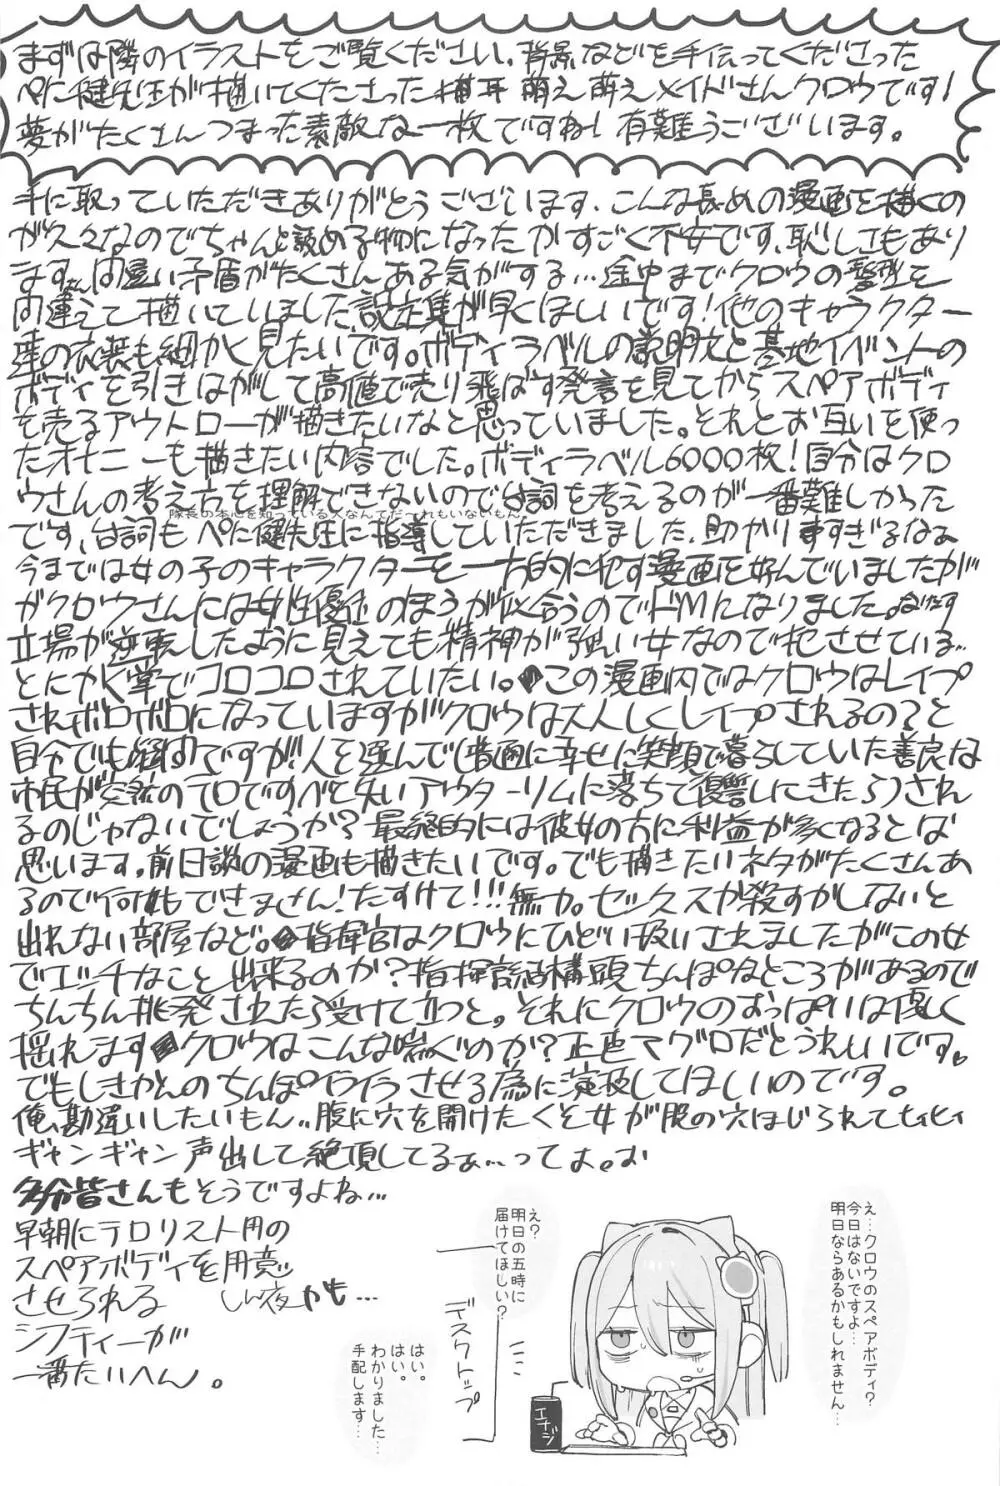 まずは隣のイラストをご覧ください。背景などを手伝ってくださった
ぺに健先生が描いてくださった猫耳萌え萌えメイドさんクロウです!
夢がたくさんつまった素敵な一枚ですね!有難うございます。
手に取っていただきありがとうございます、こんな長めの漫画を描くの
が久々なのでちゃんと読める物になったかすごく不安です、恥しくもあり
ます。間違い矛盾がたくさんある気がする…途中までクロウの髪型を
間違えて描いていました設定集が早くほしいです!他のキャラクター
達の衣装も細かく見たいです。ボディラベルの説明文と基地イベントの
ボディを引きはがして高値で売り飛ばす発言を見てからスペアボディ
を売るアウトローが描きたいなと思っていました。それとお互いを使っ
たオナニーも描きたい内容でした。ボディラベル6000枚!自分はクロ
ウさんの考え方を理解できないので台詞を考えるのが一番難しかった
隊長の本心を知っている人なんてだ〜れもいないもん。
です、台詞もぺに健先生に指導していただきました、助かりますすぎるなぁ
今までは女の子のキャラクターを一方的に犯す漫画を好んでいましたが
がクロウさんには女性優位のほうが似合うのでドMになりました。
立場が逆転したように見えても精神が強い女なので犯させている…
とにかく掌でコロコロされていたい。この漫画内ではクロウはレイプ
されボロボロになっていますがクロウは大人しくレイプされるの?と
自分でも疑問ですが!人を選んで(普通に幸せに笑顔で暮らしていた善良な
市民が突然のテロですべて失いアウターリムに落ちて復讐しにきたら)され
るのじゃないでしょうか?最終的には彼女の方に利益が多くなるとは
思います。前日談の漫画も描きたいです。でも描きたいネタがたくさんあ
るので何もできません!たすけて!!!無力。セックスか殺すかしないと
出れない部屋など。指揮官はクロウにひどい扱いされましたがこの女
でエッチなこと出来るのか?指揮官結構頭ちんぽなところがあるので
ちんちん挑発されたら受けて立つと。それにクロウのおっぱいは優しく
揺れます クロウはこんな喘ぐのか?正直マグロだとうれしいです。
でもしきかんのちんぽイライラさせる為に演技してほしいのです。
俺、勘違いしたいもん..腹に穴を開けたくそ女が股の穴ほじられてヒィヒィ
ギャンギャン声出して絶頂してるぁ…ってよ。お
多分皆さんもそうですよね…
早朝にテロリスト用の
スペアボディを用意
させられる しん夜かも…
シフティーが
一番たいへん。
え…クロウのスペアボディ?
今日はないですよ…
明日ならあるかもしれません…
え?
明日の五時に
届けてほしい?
はい。
はい。
わかりました…
手配します…
デスクトップ
エナジ